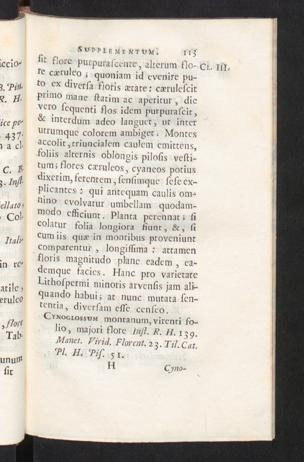 SUPPLEMENTUM. 115
sit flore purpurascente, alterum flo- Cl. III.
re cæruleo; quoniam id evenire pu-
to ex diversa floris ætate: cærulescit
primo mane statim ac aperitur, die
vero sequenti flos idem purpurascit,
& interdum adeo languet, ut inter
utrumque colorem ambiget. Montes
accolit, triuncialem caulem emittens,
foliis alternis oblongis pilosis vesti-
tum: flores cæruleos, cyaneos potius
dixerim, fetentem, sensimque sese ex-
plicantes: qui antequam caulis om-
nino evolvatur umbellam quodam-
modo efficiunt. Planta perennat: si
colatur folia longiora fiunt, &, si
cum iis quæ in montibus proveniunt
comparentur, longissima: attamen
floris magnitudo plane eadem, ea-
demque facies. Hanc pro varietate
Lithospermi minoris arvensis jam ali-
quando habui; at nunc mutata sen-
tentia, diversam esse censeo.
CYNOGLOSSUM montanum, virenti fo-
lio, majori flore Inst. R. H. 139.
Manet. Virid. Florent. 23. Til. Cat.
Pl. H. Pis. 51.
H Cyno-